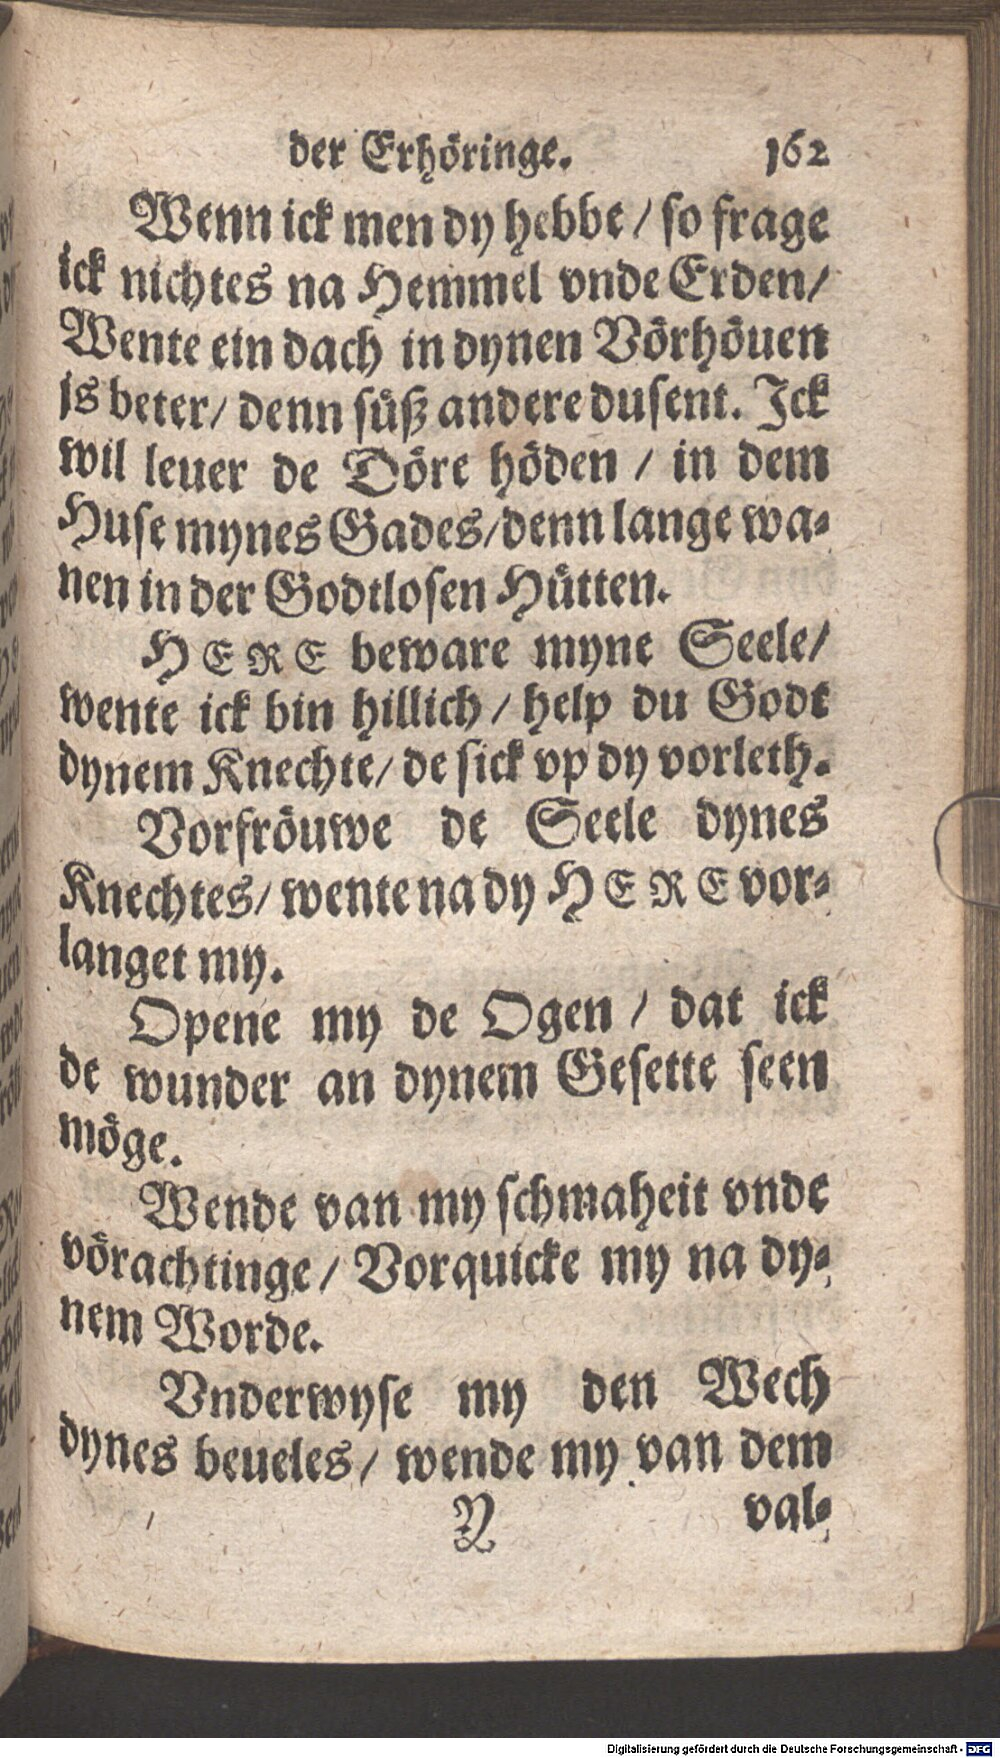 der Erhöringe. 162
Wenn ick men dy hebbe / so frage
ick nichtes na Hemmel vnde Erden/
Wente ein dach in dynen Vörhöuen
js beter/ denn süß andere dusent. Jck
wil leuer de Döre höden / in dem
Huse mynes Gades/denn lange wa-
nen in der Godtlosen Hütten.
HERE beware myne Seele/
wente ick bin hillich / help du Godt
dynem Knechte/ de sick vp dy vorleth.
Vorfröuwe de Seele dynes
Knechtes/ wente na dy HERE vor-
langet my.
Opene my de Ogen / dat ick
de wunder an dynem Gesette seen
möge.
Wende van my schmaheit vnde
vörachtinge / Vorquicke my na dy-
nem Worde.
Vnderwyse my den Wech
dynes beueles / wende my van dem
Y val-
Digitalisierung gefördert durch die Deutsche Forschungsgemeinschaft - DFG